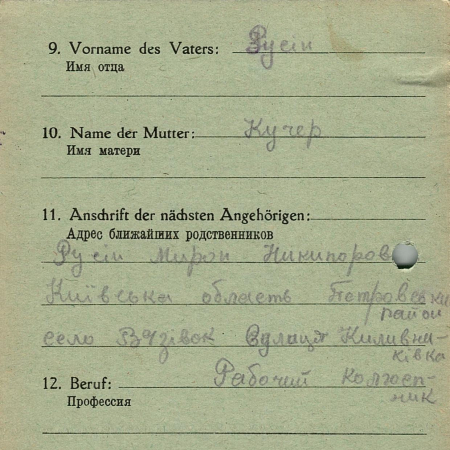 9. Vorname des Vaters: Русін
Имя отца
10. Name der Mutter: Кучер
Имя матери
11. Anschrift der nächsten Angehörigen:
Адрес ближайших родственников
Русін Мирон Никипоров
Київська область Петровськи
район
село Вязівок вулиця
ківка
12. Beruf: Рабочий колгосп-
Профессия ник